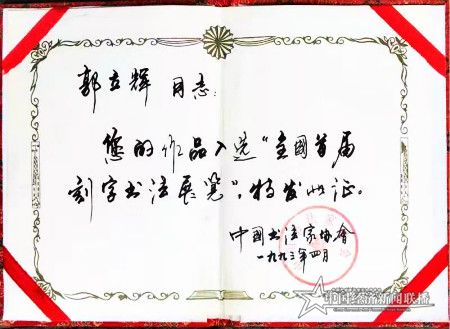 郭立辉 同志:
您的作品入选"全国首届
刻字书法展览",特发此证。
中国书法家协会
一九九三年四月